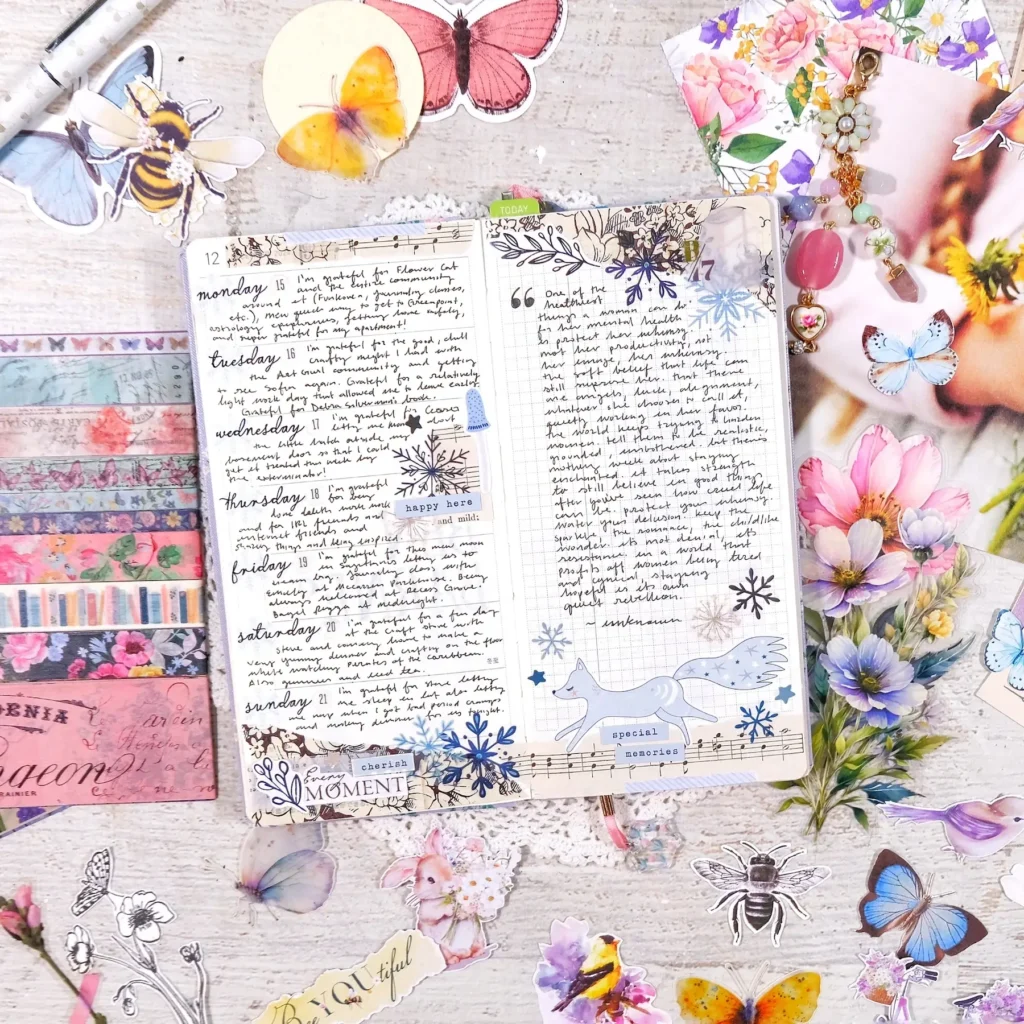 TODAY
12
monday 15 I'm grateful for Flower Cat
and the entire community
around it (Funkeover, journaling classes,
etc.), new quick way to get to Greenpoint,
astrology epiphanies, getting home safely,
and never grateful for my apartment!
tuesday 16 I'm grateful for the good, chill
crafty night I had with
the Art Grail community and getting
to see Sofia again. Grateful for a relatively
light work day that allowed me to leave early.
Grateful for Debra Silverman's book.
wednesday 17 I'm grateful for
letting me
the little hatch outside my
basement door so that I could
get it treated this week by
the exterminator.
happy here
and mild;
thursday 18 I'm grateful
for being
and for IRL friends and
internet friends and
things and being inspired.
friday 19 I'm grateful for this new moon
in sagittarius letting us to
dream big, journaling class with
Emily at McCarren Parkhouse. Being
always welcomed at Access Grove!
at midnight.
saturday 20 I'm grateful for a fun day
at the craft store with
Steve and coming home to make a
very yummy dinner and crafting on the floor
whilst watching Pirates of the Caribbean.
Also gummies and iced tea.
sunday 21 I'm grateful for Steve letting
me sleep in but also letting
me nap when I got bad period cramps
making dinner for us tonight.
cherish
Every
MOMENT
7
“ One of the
healthiest
things a woman can do
for her mental health
is protect her whimsy.
not her productivity, not
her image, her whimsy.
the soft belief that life can
still surprise her. that there
are angels, luck, alignment,
whatever she chooses to call it,
quietly working in her favor.
the world keeps trying to harden
women. tell them to be realistic,
grounded, unbothered. but there's
nothing weak about staying
enchanted. it takes strength
to still believe in good things
after you've seen how cruel life
can be. protect your whimsy.
water your delusion. keep the
sparkle, the romance, the childlike
wonder. it's not denial, it's
resistance. in a world that
profits off women being tired
and cynical, staying
hopeful is its own
quiet rebellion.
~ unknown
special
memories
BeYOUtiful